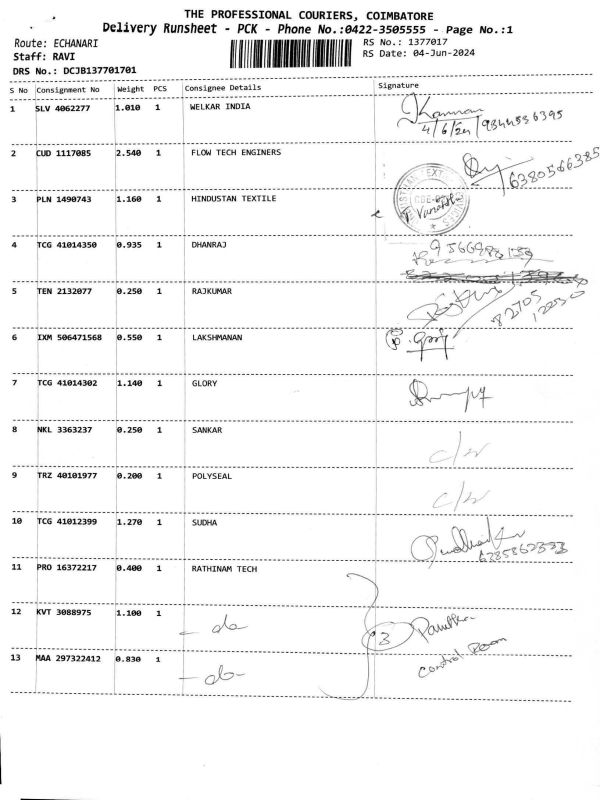 THE PROFESSIONAL COURIERS, COIMBATORE
Delivery Runsheet - PCK - Phone No.:0422-3505555 - Page No.:1
Route: ECHANARI
RS No.: 1377017
Staff: RAVI
RS Date: 04-Jun-2024
DRS No.: DCJB137701701
S No Consignment No Weight PCS Consignee Details Signature
1 SLV 4062277 1.010 1 WELKAR INDIA
4/6/24 9344536395
2 CUD 1117085 2.540 1 FLOW TECH ENGINERS
6380566385
3 PLN 1490743 1.160 1 HINDUSTAN TEXTILE
4 TCG 41014350 0.935 1 DHANRAJ
5 TEN 2132077 0.250 1 RAJKUMAR
82705
12250
6 IXM 506471568 0.550 1 LAKSHMANAN
7 TCG 41014302 1.140 1 GLORY
8 NKL 3363237 0.250 1 SANKAR
9 TRZ 40101977 0.200 1 POLYSEAL
10 TCG 41012399 1.270 1 SUDHA
11 PRO 16372217 0.400 1 RATHINAM TECH
12 KVT 3088975 1.100 1 - do
3
13 MAA 297322412 0.830 1 - do -
Control Room